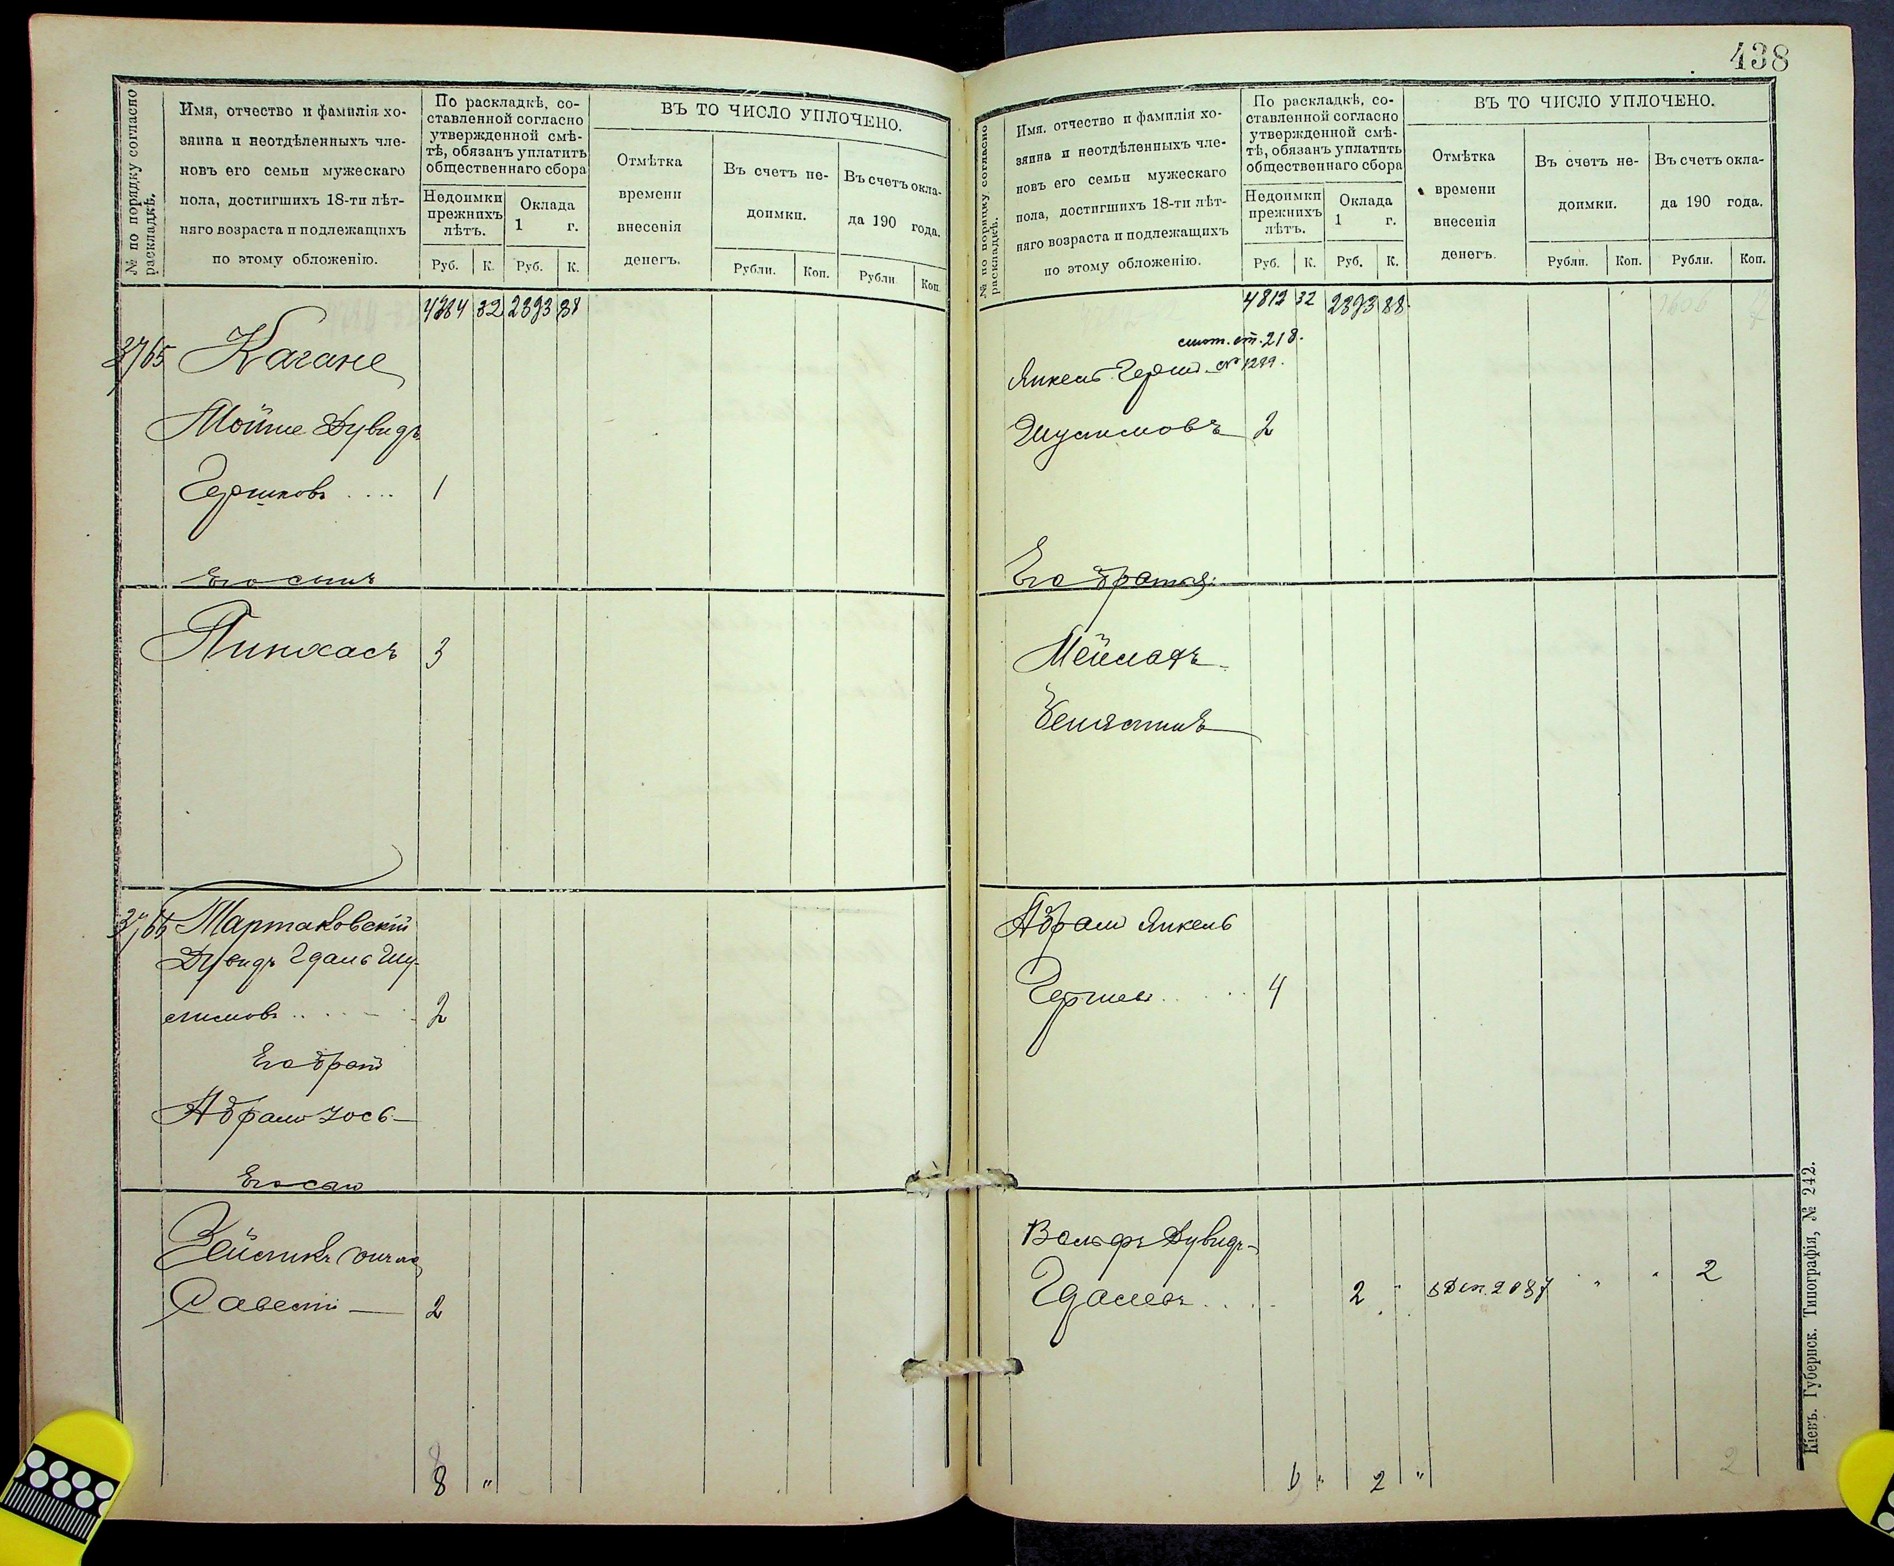 438
№ по порядку согласно
раскладкѣ.
Имя, отчество и фамилія хо-
зяина и неотдѣленныхъ чле-
новъ его семьи мужескаго
пола, достигшихъ 18-ти лѣт-
няго возраста и подлежащихъ
по этому обложенію.
По раскладкѣ, со-
ставленной согласно
утвержденной смѣ-
тѣ, обязанъ уплатить
общественнаго сбора
Недоимки
прежнихъ
лѣтъ.
Оклада
1 г.
Руб. К. Руб. К.
ВЪ ТО ЧИСЛО УПЛОЧЕНО.
Отмѣтка
времени
внесенія
денегъ.
Въ счетъ не-
доимки.
Въ счетъ окла-
да 190 года.
Рубли. Коп. Рубли Коп.
32 2393 88
3765 Кагане
Мойше Дувидъ
Гершковъ .... 1
Его сынъ
Пинхасъ 3
Мартаковскій
Дувидъ Гдаль Шу-
лимовъ 2
Его братъ
Абрамъ Іось
Его сын
Зейликъ
2
8 "
№ по порядку согласно
раскладкѣ.
Имя, отчество и фамилія хо-
зяина и неотдѣленныхъ чле-
новъ его семьи мужескаго
пола, достигшихъ 18-ти лѣт-
няго возраста и подлежащихъ
по этому обложенію.
По раскладкѣ, со-
ставленной согласно
утвержденной смѣ-
тѣ, обязанъ уплатить
общественнаго сбора
Недоимки
прежнихъ
лѣтъ.
Оклада
1 г.
Руб. К. Руб. К.
ВЪ ТО ЧИСЛО УПЛОЧЕНО.
Отмѣтка
времени
внесенія
денегъ.
Въ счетъ не-
доимки.
Въ счетъ окла-
да 190 года.
Рубли. Коп. Рубли. Коп.
4812 32 2393 88
смот. ст. 218.
Янкель Герш № 1299.
Шулимовъ 2
Его братья:
Мейлахъ
Абрам Янкель
Гершов 4
Вольфъ Дувидъ-
Гдалевъ .... 2 " " " 2
6 " 2 "
2
Кіевъ. Губернск. Типографія, № 242.